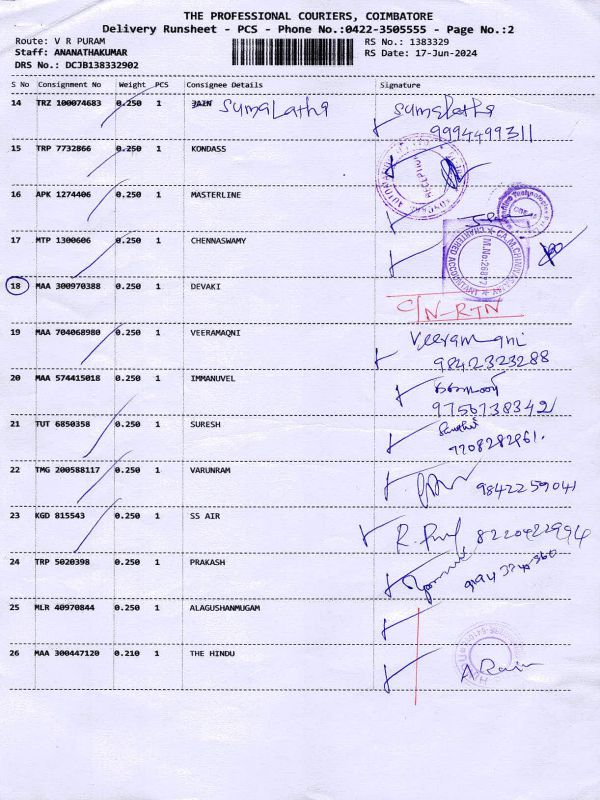 THE PROFESSIONAL COURIERS, COIMBATORE
Delivery Runsheet - PCS - Phone No.:0422-3505555 - Page No.:2
Route: V R PURAM RS No.: 1383329
Staff: ANANATHAKUMAR RS Date: 17-Jun-2024
DRS No.: DCJB138332902
S No Consignment No Weight PCS Consignee Details Signature
14 TRZ 100074683 0.250 1 JAIN Sumalatha Sumalatha
9994499311
15 TRP 7732866 0.250 1 KONDASS
16 APK 1274406 0.250 1 MASTERLINE
17 MTP 1300606 0.250 1 CHENNASWAMY
CHARTERED ACCOUNTANT
18 MAA 300970388 0.250 1 DEVAKI
C/N-RTN
19 MAA 704068980 0.250 1 VEERAMAQNI Veeramani
9842323288
20 MAA 574415018 0.250 1 IMMANUVEL
9756738342
21 TUT 6850358 0.250 1 SURESH
9208282961.
22 TMG 200588117 0.250 1 VARUNRAM 9842259041
23 KGD 815543 0.250 1 SS AIR 8220422994
24 TRP 5020398 0.250 1 PRAKASH
25 MLR 40970844 0.250 1 ALAGUSHANMUGAM
26 MAA 300447120 0.210 1 THE HINDU